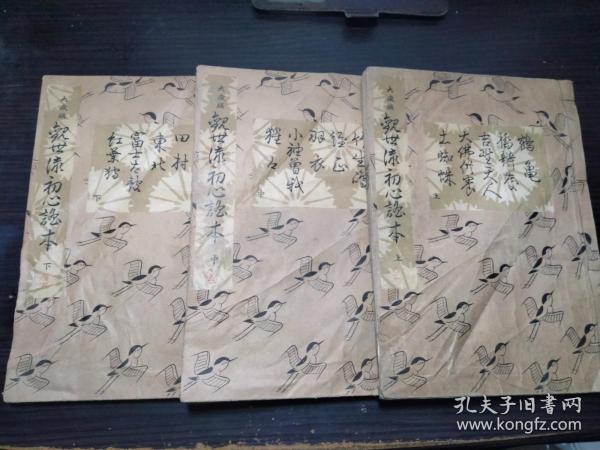 大成版 観世流初心謡本 上
鶴亀
橋弁慶
吉野天人
大仏供養
土蜘蛛
上
大成版 観世流初心謡本 中
竹生島
経正
羽衣
小袖曽我
猩々
中
大成版 観世流初心謡本 下
田村
東北
富士太鼓
紅葉狩
下
孔夫子旧书网
www.kongfz.com